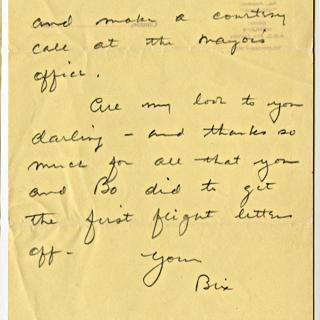 and make a courtesy
call at the mayors
office.
All my love to you
darling – and thanks so
much for all that you
and Bo did to get
the first flight letters
off –
Your
Bix